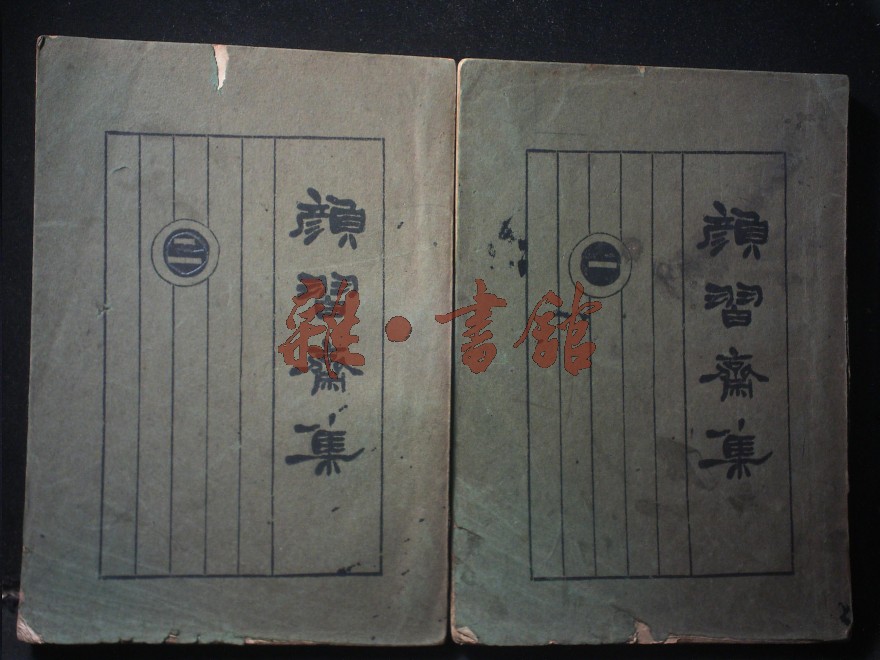 顔習齋集
二
顔習齋集
一
雜·書館